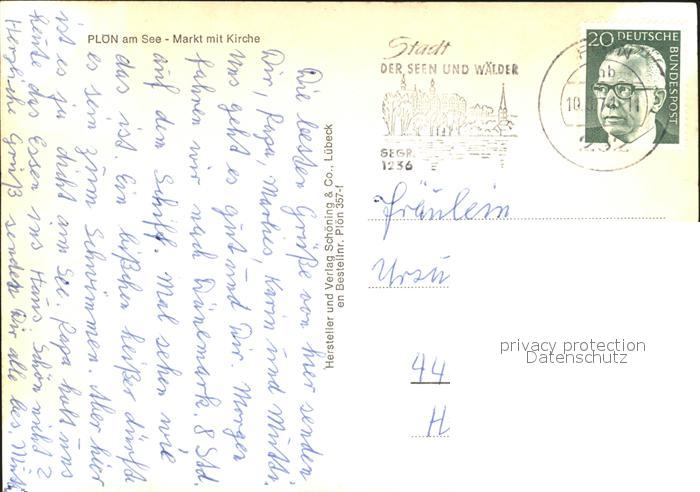 PLÖN am See - Markt mit Kirche
Die besten Grüße von hier senden
Dir, Papa, Marlies, Karin und Mutti.
Uns geht es gut und Dir. Morgen
fahren wir nach Dänemark. 8 Std.
auf dem Schiff. Mal sehen wie
das ist. Ein bißchen heißer dürfte
es sein zum Schwimmen. Aber hier
ist es ja dicht am See. Papa holt uns
heute das Essen ins Haus. Schön nicht?
Herzliche Grüße sendet Dir alle
Hersteller und Verlag Schöning & Co., Lübeck
en Bestellnr. Plön 357-f
Stadt
DER SEEN UND WÄLDER
GEGR.
1236
232
20 DEUTSCHE
BUNDESPOST
Fräulein
Ursu
44
H
privacy protection
Datenschutz